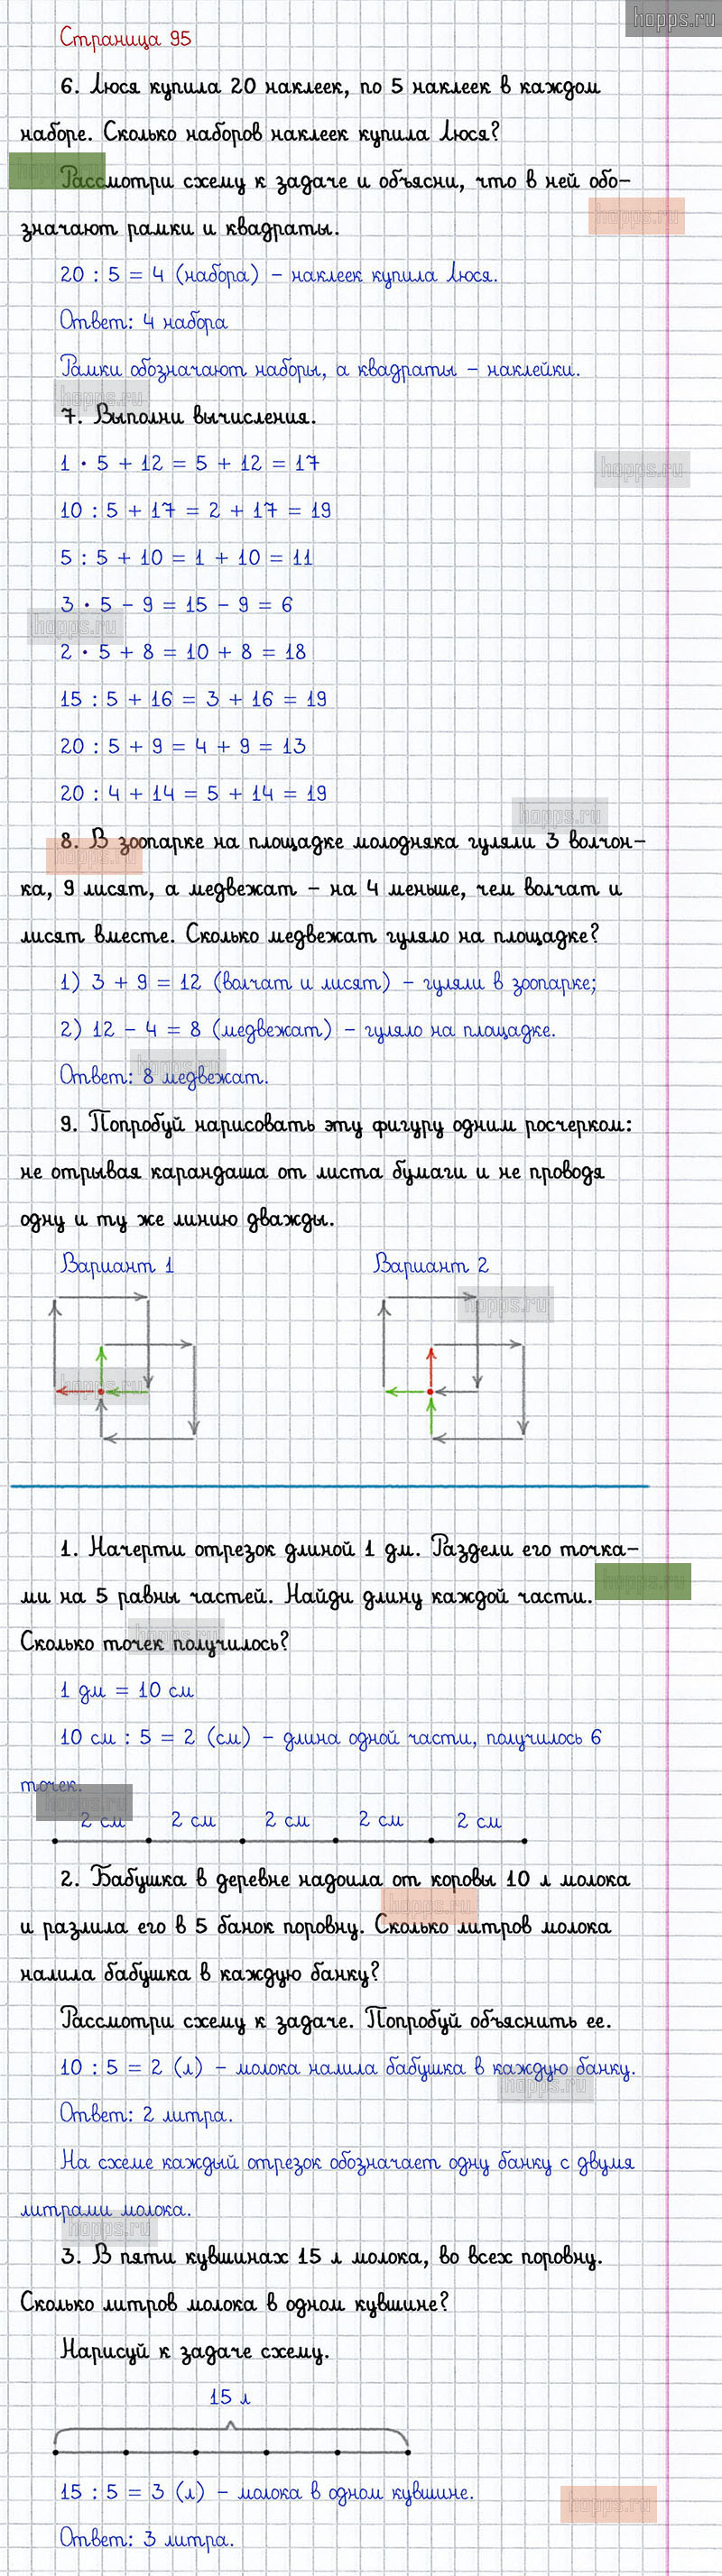 hopps.ru
Страница 95
6. Люся купила 20 наклеек, по 5 наклеек в каждом
наборе. Сколько наборов наклеек купила Люся?
Рассмотри схему к задаче и объясни, что в ней обо-
hopps.ru
значают рамки и квадраты.
20 : 5 = 4 (набора) – наклеек купила Люся.
Ответ: 4 набора
Рамки обозначают наборы, а квадраты – наклейки.
hopps.ru
7. Выполни вычисления.
1 · 5 + 12 = 5 + 12 = 17
hopps.ru
10 : 5 + 17 = 2 + 17 = 19
5 : 5 + 10 = 1 + 10 = 11
3 · 5 – 9 = 15 – 9 = 6
hopps.ru
2 · 5 + 8 = 10 + 8 = 18
15 : 5 + 16 = 3 + 16 = 19
20 : 5 + 9 = 4 + 9 = 13
20 : 4 + 14 = 5 + 14 = 19
hopps.ru
8. В зоопарке на площадке молодняка гуляли 3 волчон-
hopps.ru
ка, 9 лисят, а медвежат – на 4 меньше, чем волчат и
лисят вместе. Сколько медвежат гуляло на площадке?
1) 3 + 9 = 12 (волчат и лисят) – гуляли в зоопарке;
2) 12 – 4 = 8 (медвежат) – гуляло на площадке.
hopps.ru
Ответ: 8 медвежат.
9. Попробуй нарисовать эту фигуру одним росчерком:
не отрывая карандаша от листа бумаги и не проводя
одну и ту же линию дважды.
Вариант 1 Вариант 2
hopps.ru
hopps.ru
1. Начерти отрезок длиной 1 дм. Раздели его точка-
hopps.ru
ми на 5 равны частей. Найди длину каждой части.
hopps.ru
Сколько точек получилось?
1 дм = 10 см
10 см : 5 = 2 (см) – длина одной части, получилось 6
точек.
hopps.ru
2 см 2 см 2 см 2 см 2 см
2. Бабушка в деревне надоила от коровы 10 л молока
hopps.ru
и разлила его в 5 банок поровну. Сколько литров молока
налила бабушка в каждую банку?
Рассмотри схему к задаче. Попробуй объяснить ее.
10 : 5 = 2 (л) – молока налила бабушка в каждую банку.
hopps.ru
Ответ: 2 литра.
На схеме каждый отрезок обозначает одну банку с двумя
литрами молока.
hopps.ru
3. В пяти кувшинах 15 л молока, во всех поровну.
Сколько литров молока в одном кувшине?
Нарисуй к задаче схему.
15 л
15 : 5 = 3 (л) – молока в одном кувшине.
hopps.ru
Ответ: 3 литра.